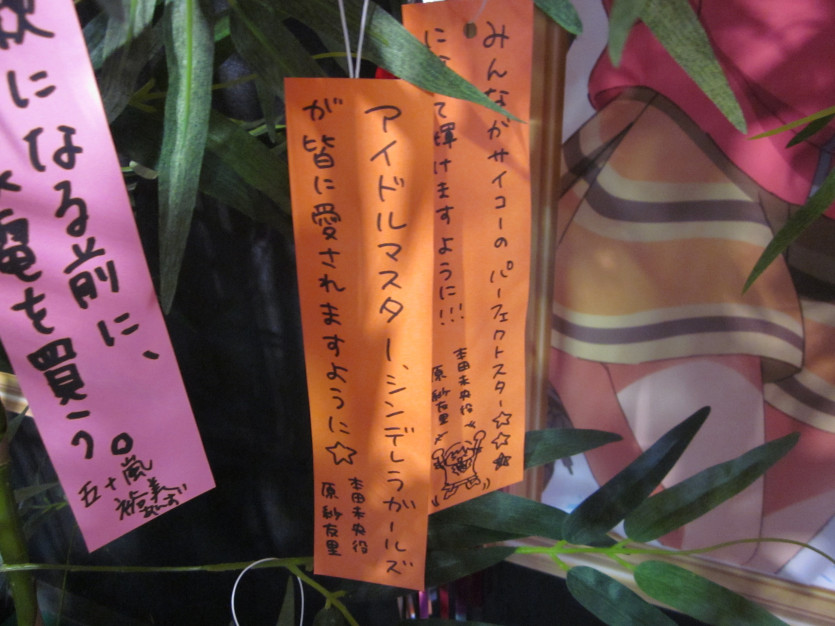 みんながサイコーのパーフェクトスター☆☆☆
て輝けますように!!!
本田未央役
原紗友里
アイドルマスター、シンデレラガールズ
が皆に愛されますように☆
本田未央役
原紗友里
になる前に、
電を買う。
五十嵐
裕美